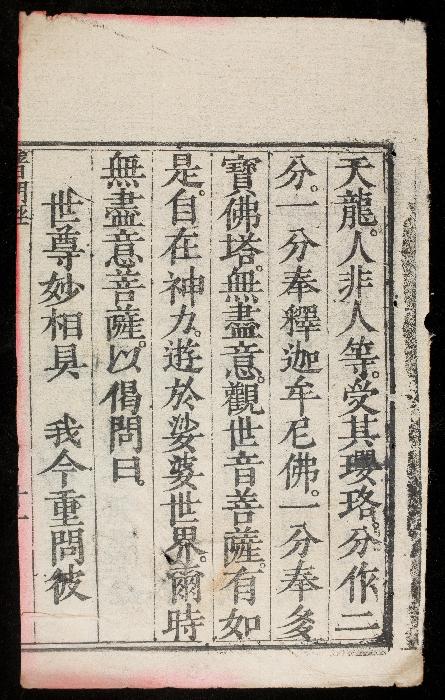 天龍。人非人等。受其瓔珞。分作二
分。一分奉釋迦牟尼佛。一分奉多
寶佛塔。無盡意。觀世音菩薩。有如
是。自在神力。遊於娑婆世界。爾時
無盡意菩薩。以偈問曰。
世尊妙相具　我今重問彼
普門品
十一